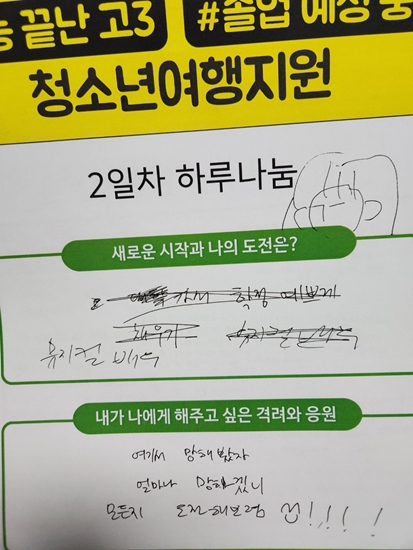 능 끝난 고3 #졸업 예정 중
청소년여행지원
2일차 하루나눔
새로운 시작과 나의 도전은?
가서 학점 예쁘게
채우기
뮤지컬 배우
내가 나에게 해주고 싶은 격려와 응원
여기서 망해봤자
얼마나 망하겠니
모든지 도전해보렴 !!!!